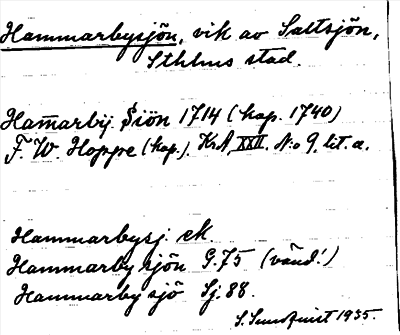 Hammarbysjön, vik av Saltsjön,
Sthlms stad.
Ham̄arbÿ Siön 1714 (kop. 1740)
F. W. Hoppe (kop.). KrA, XXII. N:o 9. lit. a.
Hammarbysj. eK.
Hammarby sjön G.75 (vänd!)
Hammarby sjö Sj. 88.
S. Sundquist 1935.